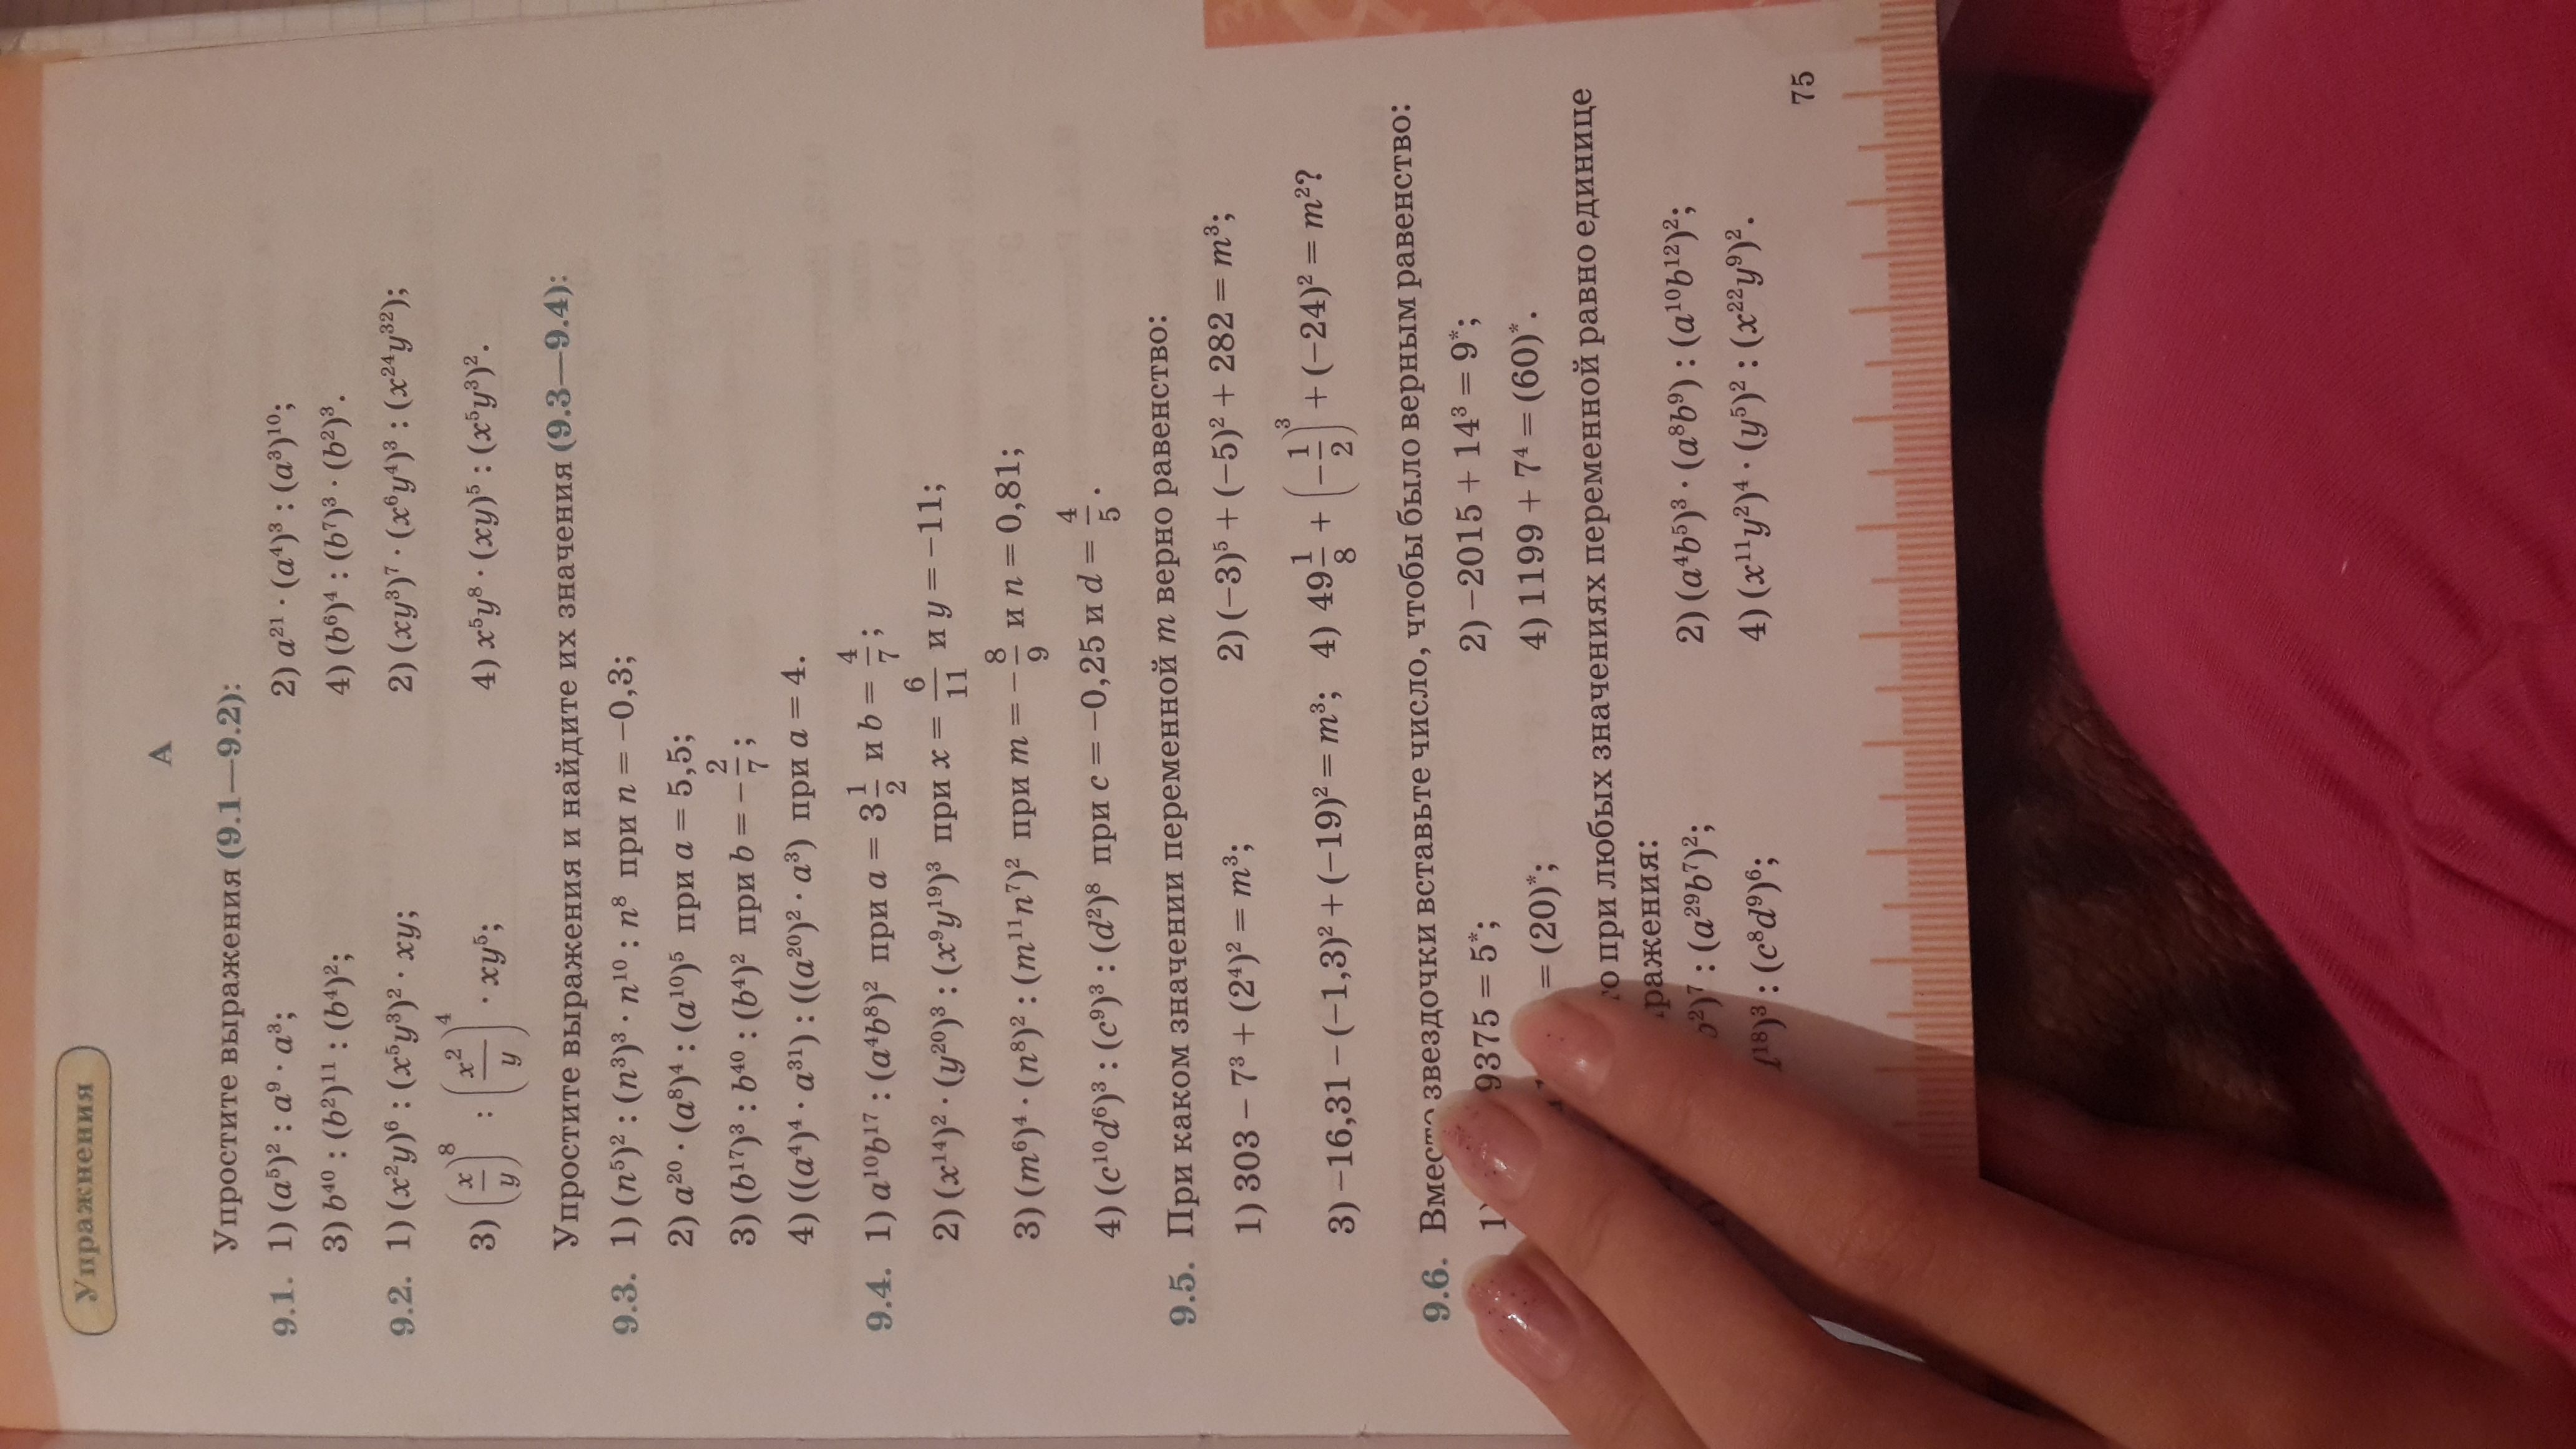 Упражнения
А
Упростите выражения (9.1—9.2):
9.1. 1) (a⁵)² : a⁹ · a³; 2) a²¹ · (a⁴)³ : (a³)¹⁰;
3) b⁴⁰ : (b²)¹¹ : (b⁴)²; 4) (b⁶)⁴ : (b⁷)³ · (b²)³.
9.2. 1) (x²y)⁶ : (x⁵y³)² · xy; 2) (xy³)⁷ · (x⁶y⁴)³ : (x²⁴y³²);
3) (x/y)⁸ : (x²/y)⁴ · xy⁵; 4) x⁵y⁸ · (xy)⁵ : (x⁵y³)².
Упростите выражения и найдите их значения (9.3—9.4):
9.3. 1) (n⁵)² : (n³)³ · n¹⁰ : n⁸ при n = −0,3;
2) a²⁰ · (a⁸)⁴ : (a¹⁰)⁵ при a = 5,5;
3) (b¹⁷)³ : b⁴⁰ : (b⁴)² при b = −2/7;
4) ((a⁴)⁴ · a³¹) : ((a²⁰)² · a³) при a = 4.
9.4. 1) a¹⁰b¹⁷ : (a⁴b⁸)² при a = 3 1/2 и b = 4/7;
2) (x¹⁴)² · (y²⁰)³ : (x⁹y¹⁹)³ при x = 6/11 и y = −11;
3) (m⁶)⁴ · (n⁸)² : (m¹¹n⁷)² при m = −8/9 и n = 0,81;
4) (c¹⁰d⁶)³ : (c⁹)³ : (d²)⁸ при c = −0,25 и d = 4/5.
9.5. При каком значении переменной m верно равенство:
1) 303 − 7³ + (2⁴)² = m³; 2) (−3)⁵ + (−5)² + 282 = m³;
3) −16,31 − (−1,3)² + (−19)² = m³; 4) 49 1/8 + (−1/2)³ + (−24)² = m²?
9.6. Вместо звездочки вставьте число, чтобы было верным равенство:
1) 9375 = 5*; 2) −2015 + 14³ = 9*;
= (20)*; 4) 1199 + 7⁴ = (60)*.
при любых значениях переменной равно единице
ражения:
b²)⁷ : (a²⁹b⁷)²; 2) (a⁴b⁵)³ · (a⁸b⁹) : (a¹⁰b¹²)²;
¹⁸)³ : (c⁸d⁹)⁶; 4) (x¹¹y²)⁴ · (y⁵)² : (x²²y⁹)².
75